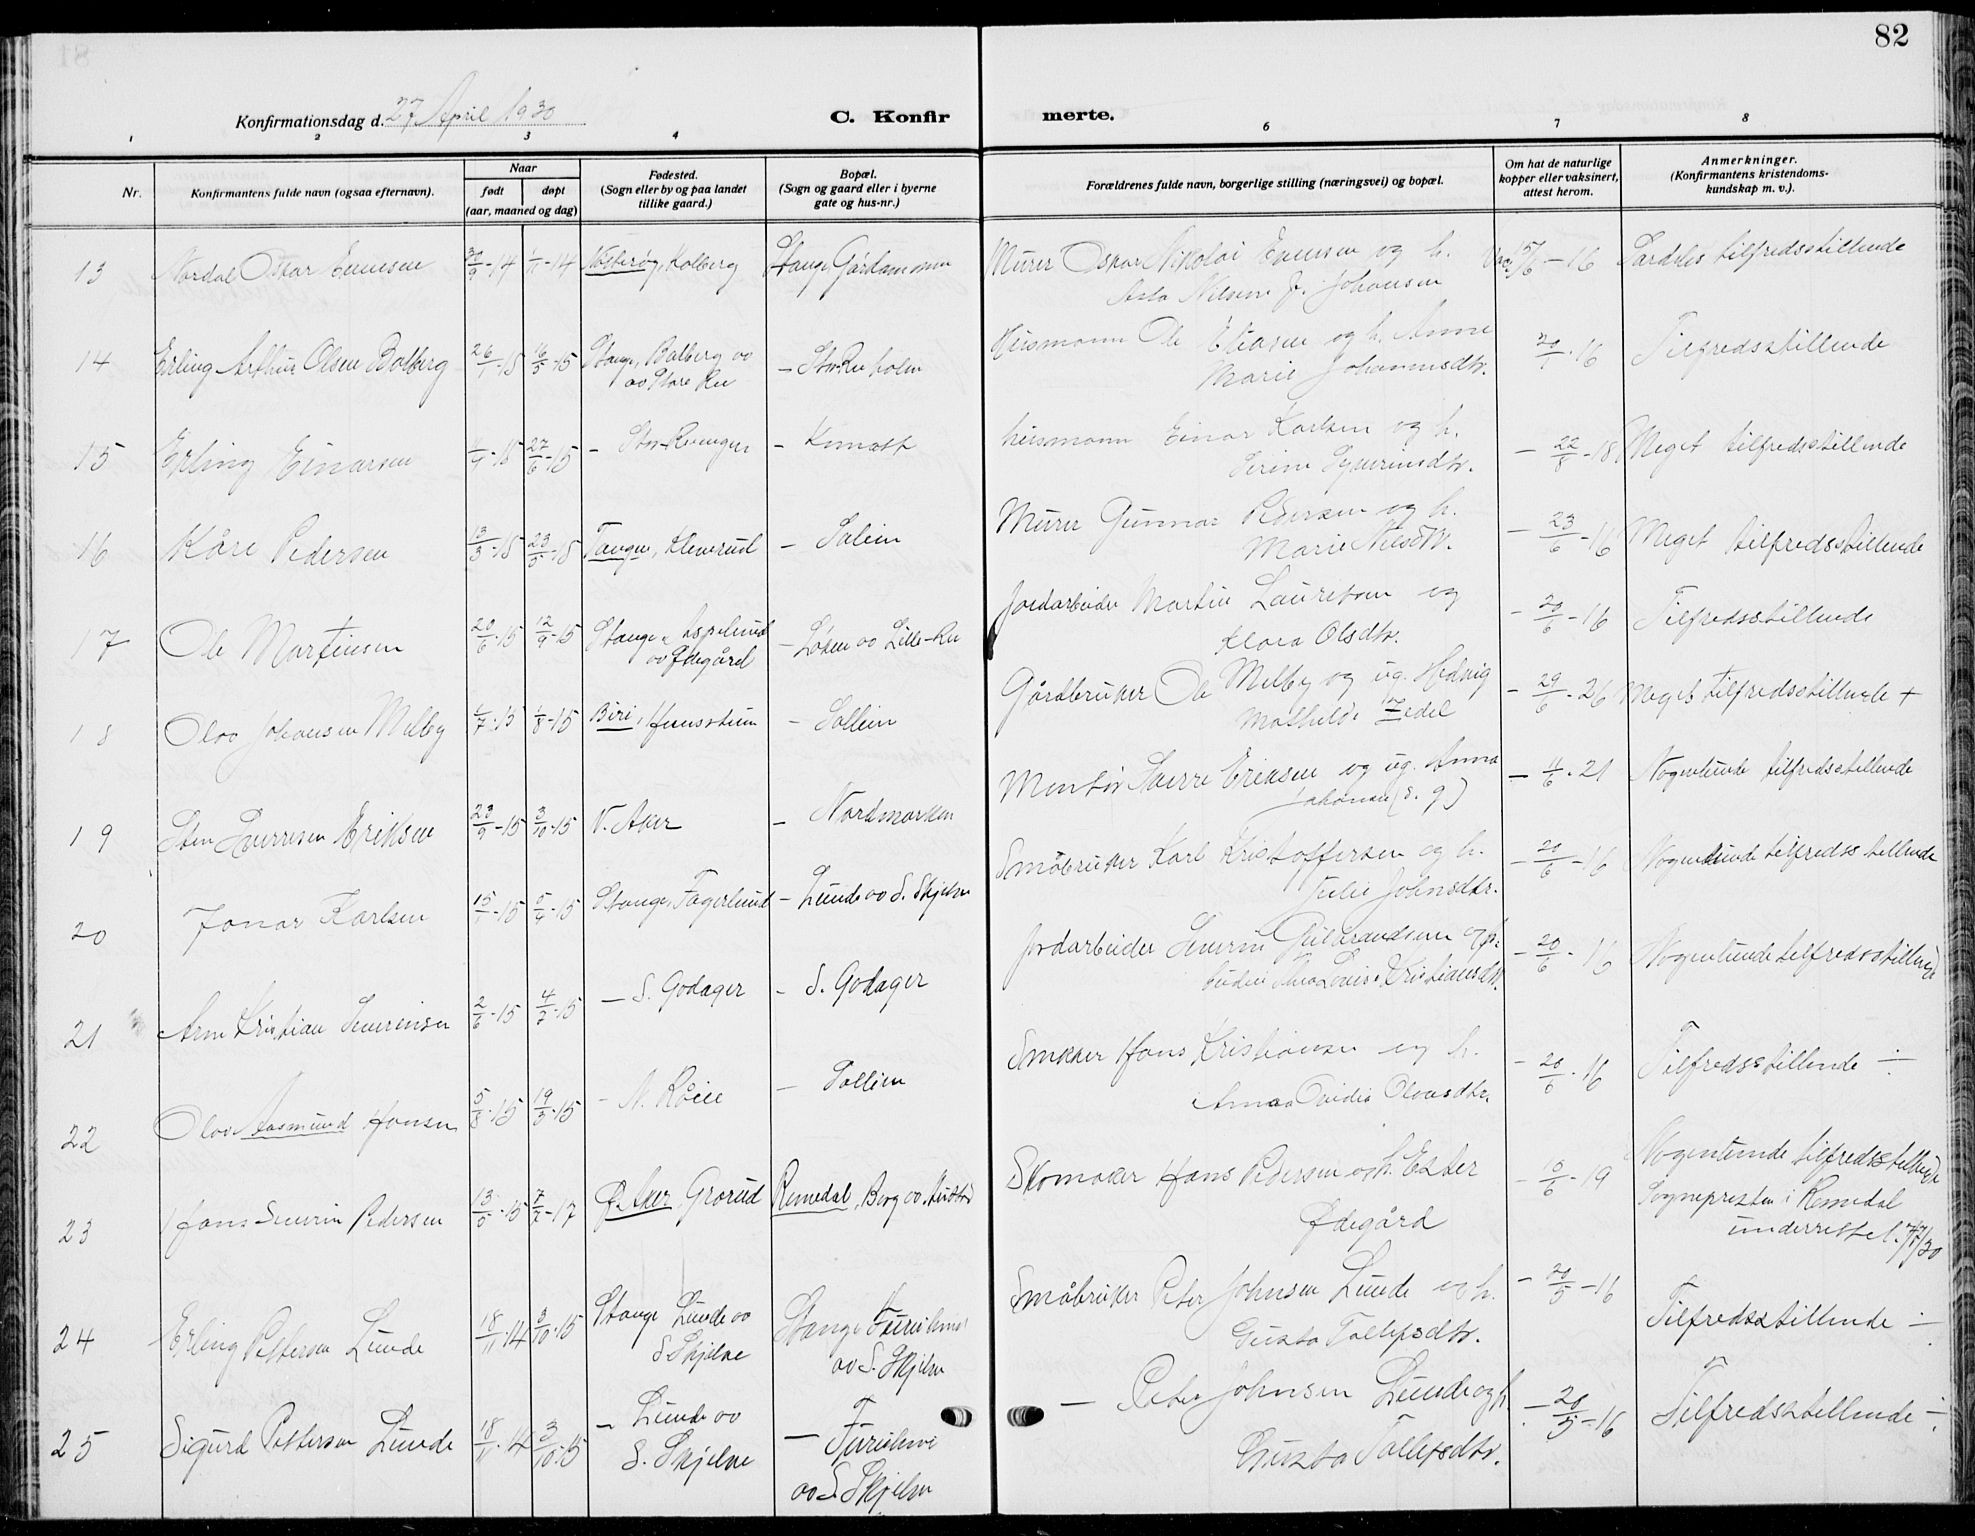 82
Konfirmationsdag d. 27 April 1930
C. Konfir
merte.
1 2 3 4 6 7 8
Nr.
Konfirmantens fulde navn (ogsaa efternavn).
Naar
født døpt
(aar, maaned og dag)
Fødested.
(Sogn eller by og paa landet
tillike gaard.)
Bopæl.
(Sogn og gaard eller i byerne
gate og hus-nr.)
Forældrenes fulde navn, borgerlige stilling (næringsvei) og bopæl.
Om hat de naturlige
kopper eller vaksinert,
attest herom.
Anmerkninger.
(Konfirmantens kristendoms-
kundskap m. v.).
13 Nordal Oskar Evensen 30/9-14 1/11-14 Kolberg Stange
Murer Oskar Nikolai Evensen og h. 15/6-16 Særdeles tilfredsstillende
Asta Nilsen f. Johansen
14 Erling Arthur Olsen Bolberg 26/1-15 16/5-15 Stange, Bolberg av
av Store Ree
Husmann Ole og h. Anne 20/1-16 Tilfredsstillende
Marie Johannisdtr.
15 Erling Einarsen 27/6-15 -
husmann Einar Karlsen og h. - 22/8-18 Meget tilfredsstillende
16 Kåre Pedersen 13/3-15 23/5-15 Tangen, Klemrud - Solein
Murer Gunnar Pedersen og h. - 23/6-16 Meget tilfredsstillende
Marie Nilsdtr.
17 Ole Martinsen 20/6-15 12/9-15 Stange
av Ødegård - av Lille-Ree
Jordarbeider Martin Lauritsen og - 20/6-16 Tilfredsstillende
Klara Olsdtr.
18 Olav Johansen Melby 1/7-15 1/8-15 Biri, - Sollein
Gårdbruker Ole Melby og ug. Hedvig - 29/6-26 Meget tilfredsstillende +
Mathilde
19 Sten Sverresen Eriksen 23/9-15 3/10-15 V. Aker - Nordmarken
Montør Sverre Eriksen og ug. Anna - 11/6-21 Nogenlunde tilfredsstillende
Johansen (s. g.)
20 Jonar Karlsen 15/1-15 5/4-15 Stange, Fagerlund - Lunde av S. Skjelve
Småbruker Karl Kristoffersen og h. - 20/6-16 Nogenlunde tilfredsstillende
Julie Johnsdtr.
21 Arne Kristian Severinsen 2/6-15 4/7-15 - S. Godager - S. Godager
Jordarbeider Severin Gulbrandsen og h. - 20/6-16 Nogenlunde tilfredsstillende
Louise Kristiansdtr.
22 Olav Aasmund Hansen 5/8-15 - - Sollein
Snekker Hans Kristiansen og h. - 20/6-16 Tilfredsstillende ÷
Anna Ovidia Olavsdtr.
23 Hans Severin Pedersen 13/5-15 7/2-17 Ø. Aker, Grorud Romedal, Berg av
Skomaker Hans Pedersen og h. Ester - 15/6-19 Nogenlunde tilfredsstillende
Ødegård
Sognepresten i Romedal
underrettet.
24 Erling Pettersen Lunde 18/11-14 3/10-15 Stange Lunde av
S. Skjelve Stange
av S. Skjelve
Småbruker Peter Johnsen Lunde og h. - 20/5-16 Tilfredsstillende ÷
Gusta Tollefsdtr.
25 Sigurd Pettersen Lunde 18/11-14 3/10-15 - Lunde av
S. Skjelve -
av S. Skjelve
- Peter Johnsen Lunde og h. - 20/5-16 Tilfredsstillende ÷
Gusta Tollefsdtr.